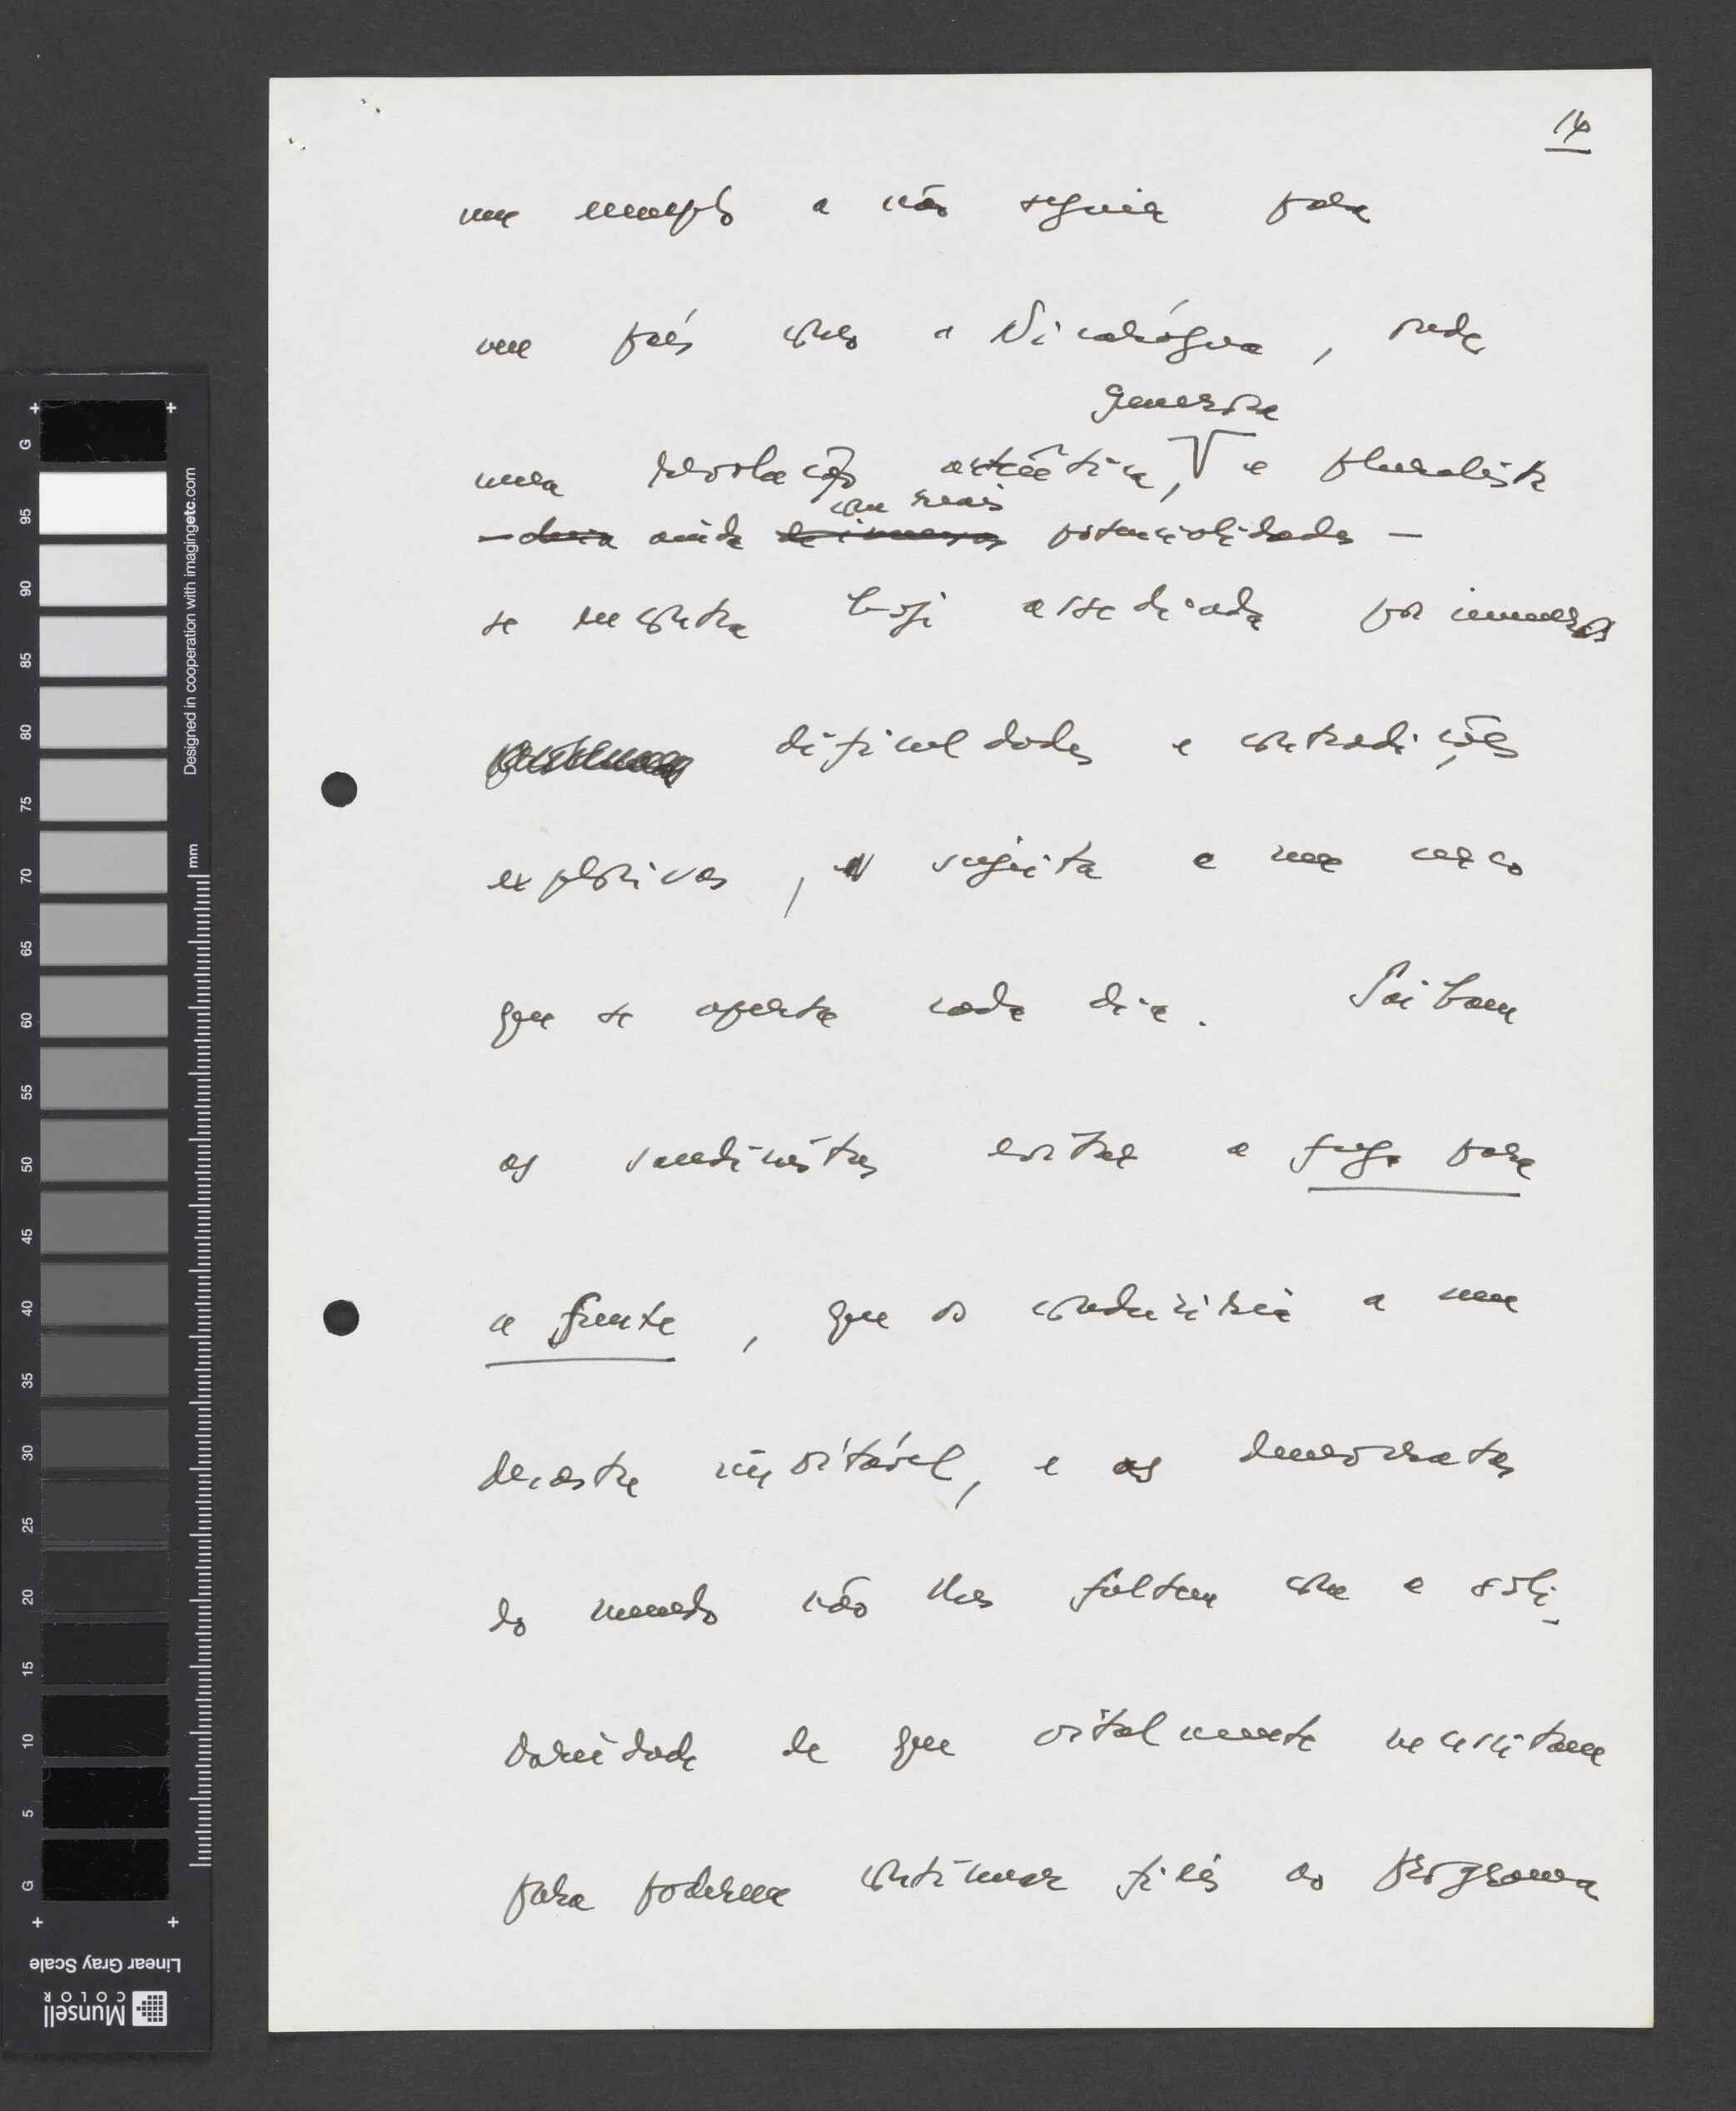 14
um exemplo a não seguir para
um país como a Nicarágua, onde
generosa
uma revolução autêntica, e pluralista
com reais
— cheia ainda de imensas potencialidades —
se encontra hoje assediada por inúmeras
dificuldades e contradições
explosivas, sujeita a um cerco
que se aperta cada dia. Saibam
os sandinistas evitar a fuga para
a frente, que os conduziria a um
desastre inevitável, e os democratas
do mundo não lhes faltem com a soli-
dariedade de que vitalmente necessitam
para poderem continuar fiéis ao programa
G
95
90
85
80
75
70
65
60
55
50
45
40
35
30
25
20
15
10
5
G
mm
Designed in cooperation with imagingetc.com
Linear Gray Scale
Munsell
COLOR